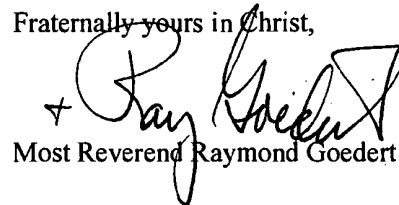 Fraternally yours in Christ,
+ Ray Goedert
Most Reverend Raymond Goedert